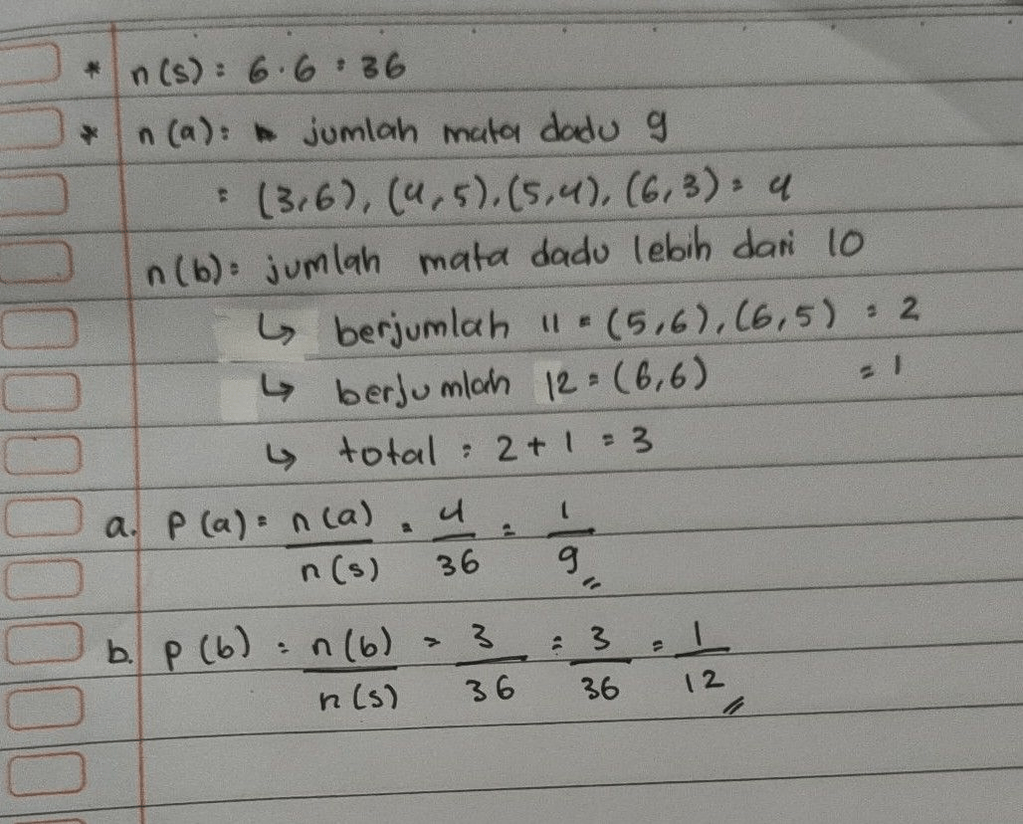 * n(s) = 6.6 = 36
* n(a) = jumlah mata dadu 9
= (3,6), (4,5), (5,4), (6,3) = 4
n(b) = jumlah mata dadu lebih dari 10
↳ berjumlah 11 = (5,6), (6,5) = 2
↳ berjumlah 12 = (6,6) = 1
↳ total = 2 + 1 = 3
a. P(a) = n(a)/n(s) = 4/36 = 1/9
b. P(b) = n(b)/n(s) = 3/36 = 3/36 = 1/12